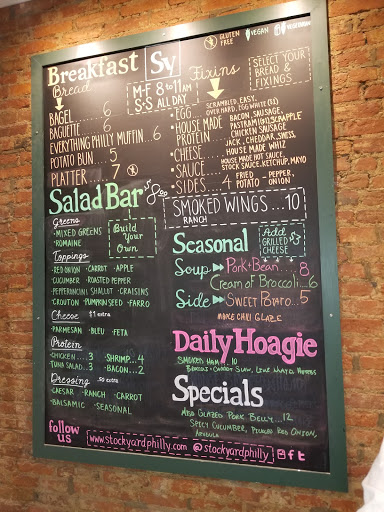 GLUTEN FREE
VEGAN
VEGETARIAN
Breakfast
Sy
Fixins
Bread
M-F 8 to 11 AM
S+S ALL DAY
SELECT YOUR BREAD & FIXINGS
BAGEL 6
BAGUETTE 6
EVERYTHING PHILLY MUFFIN 6
POTATO BUN 5
PLATTER 7
EGG SCRAMBLED, EASY, OVER HARD, EGG WHITE (+2)
HOUSE MADE PROTEIN BACON, SAUSAGE, PASTRAMI (+2), SCRAPPLE CHICKEN SAUSAGE
CHEESE JACK, CHEDDAR, SWISS, HOUSE MADE WHIZ
SAUCE HOUSE MADE HOT SAUCE, STOCK SAUCE, KETCHUP, MAYO
SIDES 4 FRIED POTATO PEPPER, ONION
Salad Bar $8.00
Greens
MIXED GREENS
ROMAINE
Build Your Own
Toppings
RED ONION CARROT APPLE
CUCUMBER ROASTED PEPPER
PEPPERONCINI SHALLOT CRAISINS
CROUTON PUMPKIN SEED FARRO
Cheese $1 extra
PARMESAN BLEU FETA
Protein
CHICKEN 3 SHRIMP 4
TUNA SALAD 3 BACON 2
Dressing .50 extra
CAESAR RANCH CARROT
BALSAMIC SEASONAL
SMOKED WINGS ...10
RANCH
Seasonal
Add GRILLED CHEESE
Soup Pork + Bean 8
Cream of Broccoli 6
Side SWEET POTATO 5
MAKE CHILI GLAZE
Daily Hoagie
SMOKED HAM 10
CARROT SLAW, LIME MAYO
Specials
MISO GLAZED PORK BELLY 12
SPICY CUCUMBER, PICKLED RED ONION,
ARUGULA
follow us
www.stockyardphilly.com @stockyardphilly